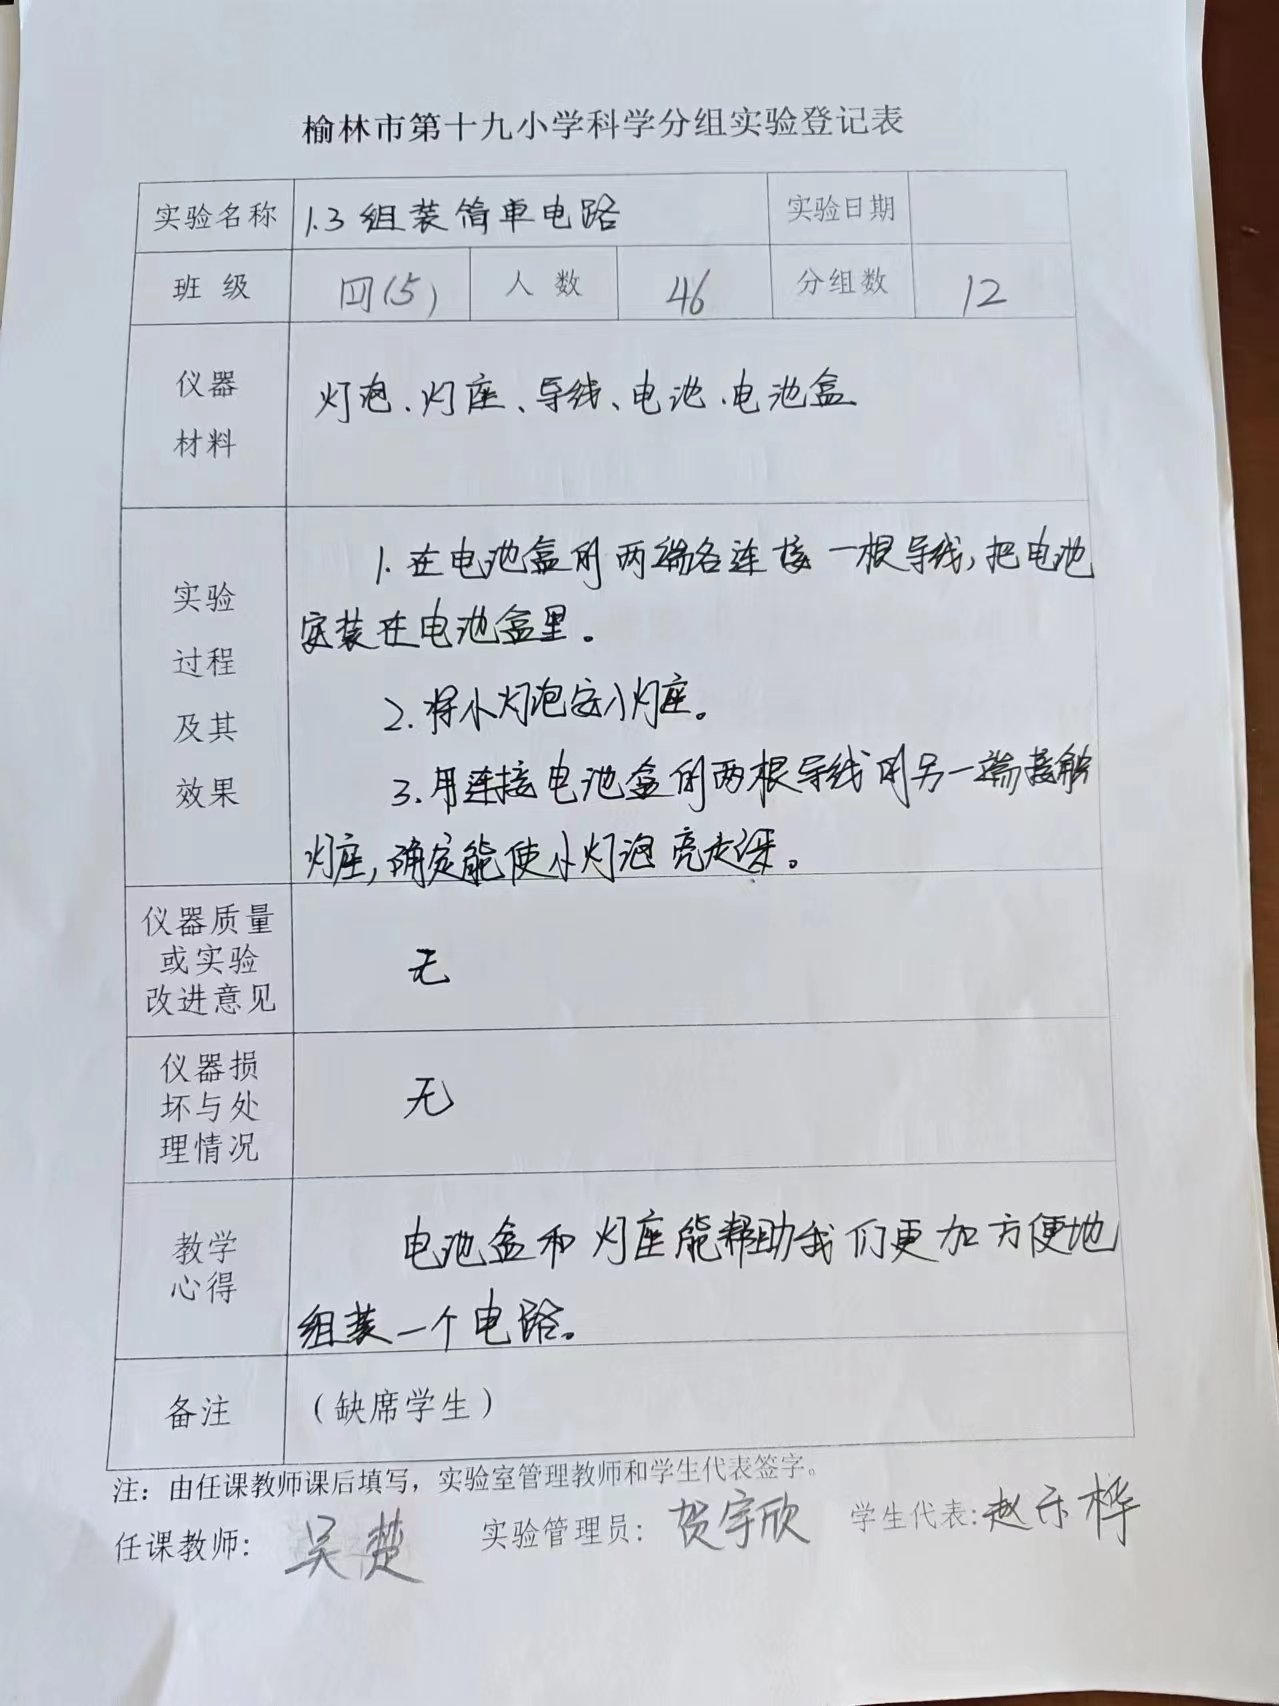 榆林市第十九小学科学分组实验登记表
实验名称 1.3 组装简单电路 实验日期
班 级 四(5) 人 数 46 分组数 12
仪器
材料
灯泡、灯座、导线、电池、电池盒
实验
过程
及其
效果
1. 在电池盒的两端各连接一根导线,把电池
安装在电池盒里。
2. 将小灯泡安入灯座。
3. 用连接电池盒的两根导线的另一端接触
灯座,确定能使小灯泡亮起来。
仪器质量
或实验
改进意见
无
仪器损
坏与处
理情况
无
教学
心得
电池盒和灯座能帮助我们更加方便地
组装一个电路。
备注 (缺席学生)
注：由任课教师课后填写，实验室管理教师和学生代表签字。
任课教师: 吴楚 实验管理员: 贺宇欣 学生代表: 赵